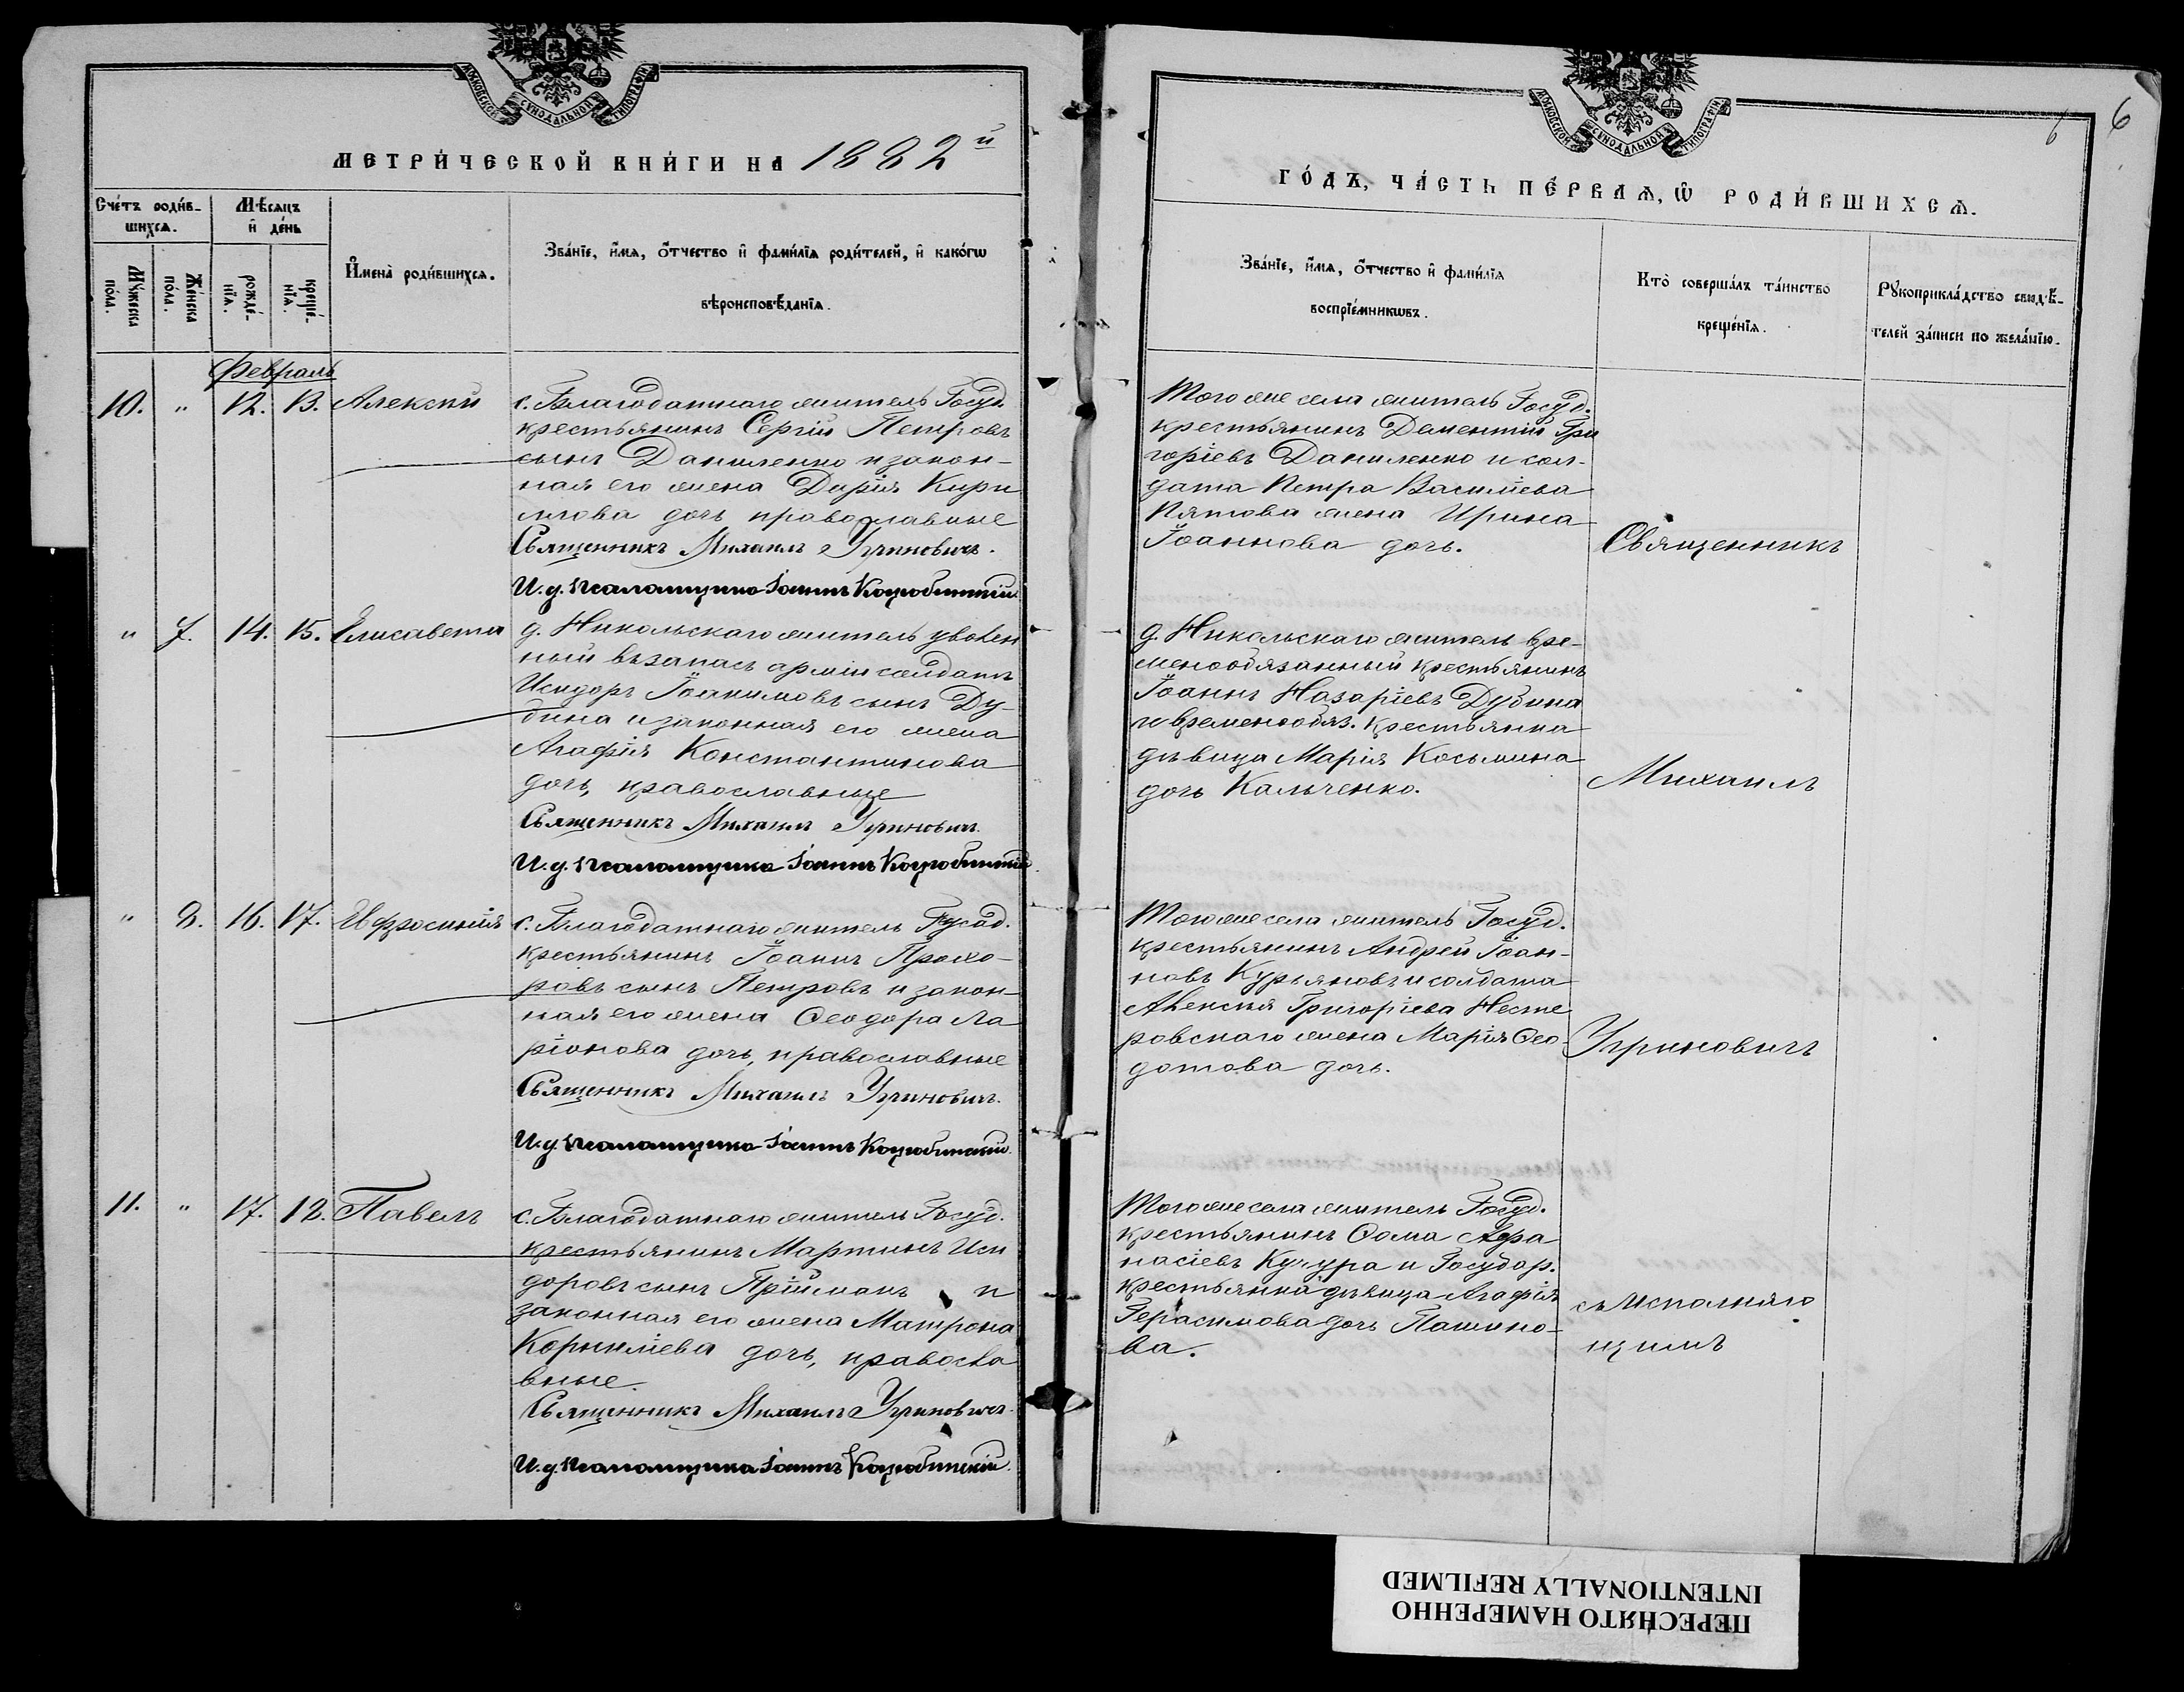 МОСКОВСКОЙ СѴНОДАЛЬНОЙ ТИПОГРАФІИ
МЕТРИ́ЧЕСКОЙ КНИ́ГИ НА 1882й
Сче́тъ роди́в-
шихсѧ.
Мꙋ́жеска
по́ла.
Же́нска
по́ла.
Мѣ́сѧцъ
и҆ де́нь
рожде́-
нїѧ.
креще́-
нїѧ.
И҆мена̀ роди́вшихсѧ.
Зва́нїе, и҆́мѧ, ѻ҆́тчество и҆ фами́лїѧ роди́телей, и҆ како́гѡ
вѣроисповѣ́данїѧ.
Февраль
10. " 12. 13. Алексій
с. Благодатнаго житель Госуд.
крестьянинъ Сергій Петровъ
сынъ Даниленко и закон-
ная его жена Дарія Кири
лова дочь православные
Священникъ Михаилъ Угриновичъ.
И. д. псаломщика Іоаннъ
" 7. 14. 15. Елисавета
д. Никольскаго житель уволен
ный въ запасъ арміи солдатъ
Исидоръ Іоакимовъ сынъ Ду-
бина и законная его жена
Агафія Константинова
дочь, православные
Священникъ Михаилъ Угриновичъ.
И. д. псаломщика Іоаннъ
" 8. 16. 17. Евфросинія
с. Благодатнаго житель Гусод.
крестьянинъ Іоаннъ Прохо-
ровъ сынъ Петровъ и закон-
ная его жена Ѳеодора Ла
ріонова дочь, православные
Священникъ Михаилъ Угриновичъ.
И. д. псаломщика Іоаннъ
11. " 17. 18. Павелъ
с. Благодатнаго житель Госуд.
крестьянинъ Мартинъ Иси
доровъ сынъ Пріймакъ и
законная его жена Матрона
Корниліева дочь, правосла
вные.
Священникъ Михаилъ Угриновичъ.
И. д. псаломщика Іоаннъ
6 6
МОСКОВСКОЙ СѴНОДАЛЬНОЙ ТИПОГРАФІИ
ГО́ДЪ, ЧА́СТЬ ПЕ́РВАѦ, Ѽ РОДИ́ВШИХСѦ.
Зва́нїе, и҆́мѧ, ѻ҆́тчество и҆ фами́лїѧ
воспрїе́мникѡвъ.
Кто̀ соверша́лъ та́инство
креще́нїѧ.
Рꙋкоприкла́дство свидѣ́-
телей за́писи по жела́нїю.
Того же села житель Госуд.
крестьянинъ Дементій Гри
горіевъ Даниленко и сол-
дата Петра Василіева
Пятова жена Ирина
Іоаннова дочь.
д. Никольскаго житель вре-
меннообязанный крестьянинъ
Іоаннъ Назаріевъ Дубина
и временнообяз. крестьянка
дѣвица Марія Косьмина
дочь Кальченко.
Того же села житель Госуд.
крестьянинъ Андрей Іоан-
новъ Курьяновъ и солдата
Алексія Григоріева Несте
ровскаго жена Марія Ѳео-
дотова дочь.
Того же села житель Госуд.
крестьянинъ Ѳома Афа
насіевъ Кучура и Государ.
крестьянка дѣвица Агафія
Герасимова дочь Пашино-
ва.
Священникъ
Михаилъ
Угриновичъ
съ исполняю
щимъ
ПЕРЕСНЯТО НАМЕРЕННО
INTENTIONALLY REFILMED